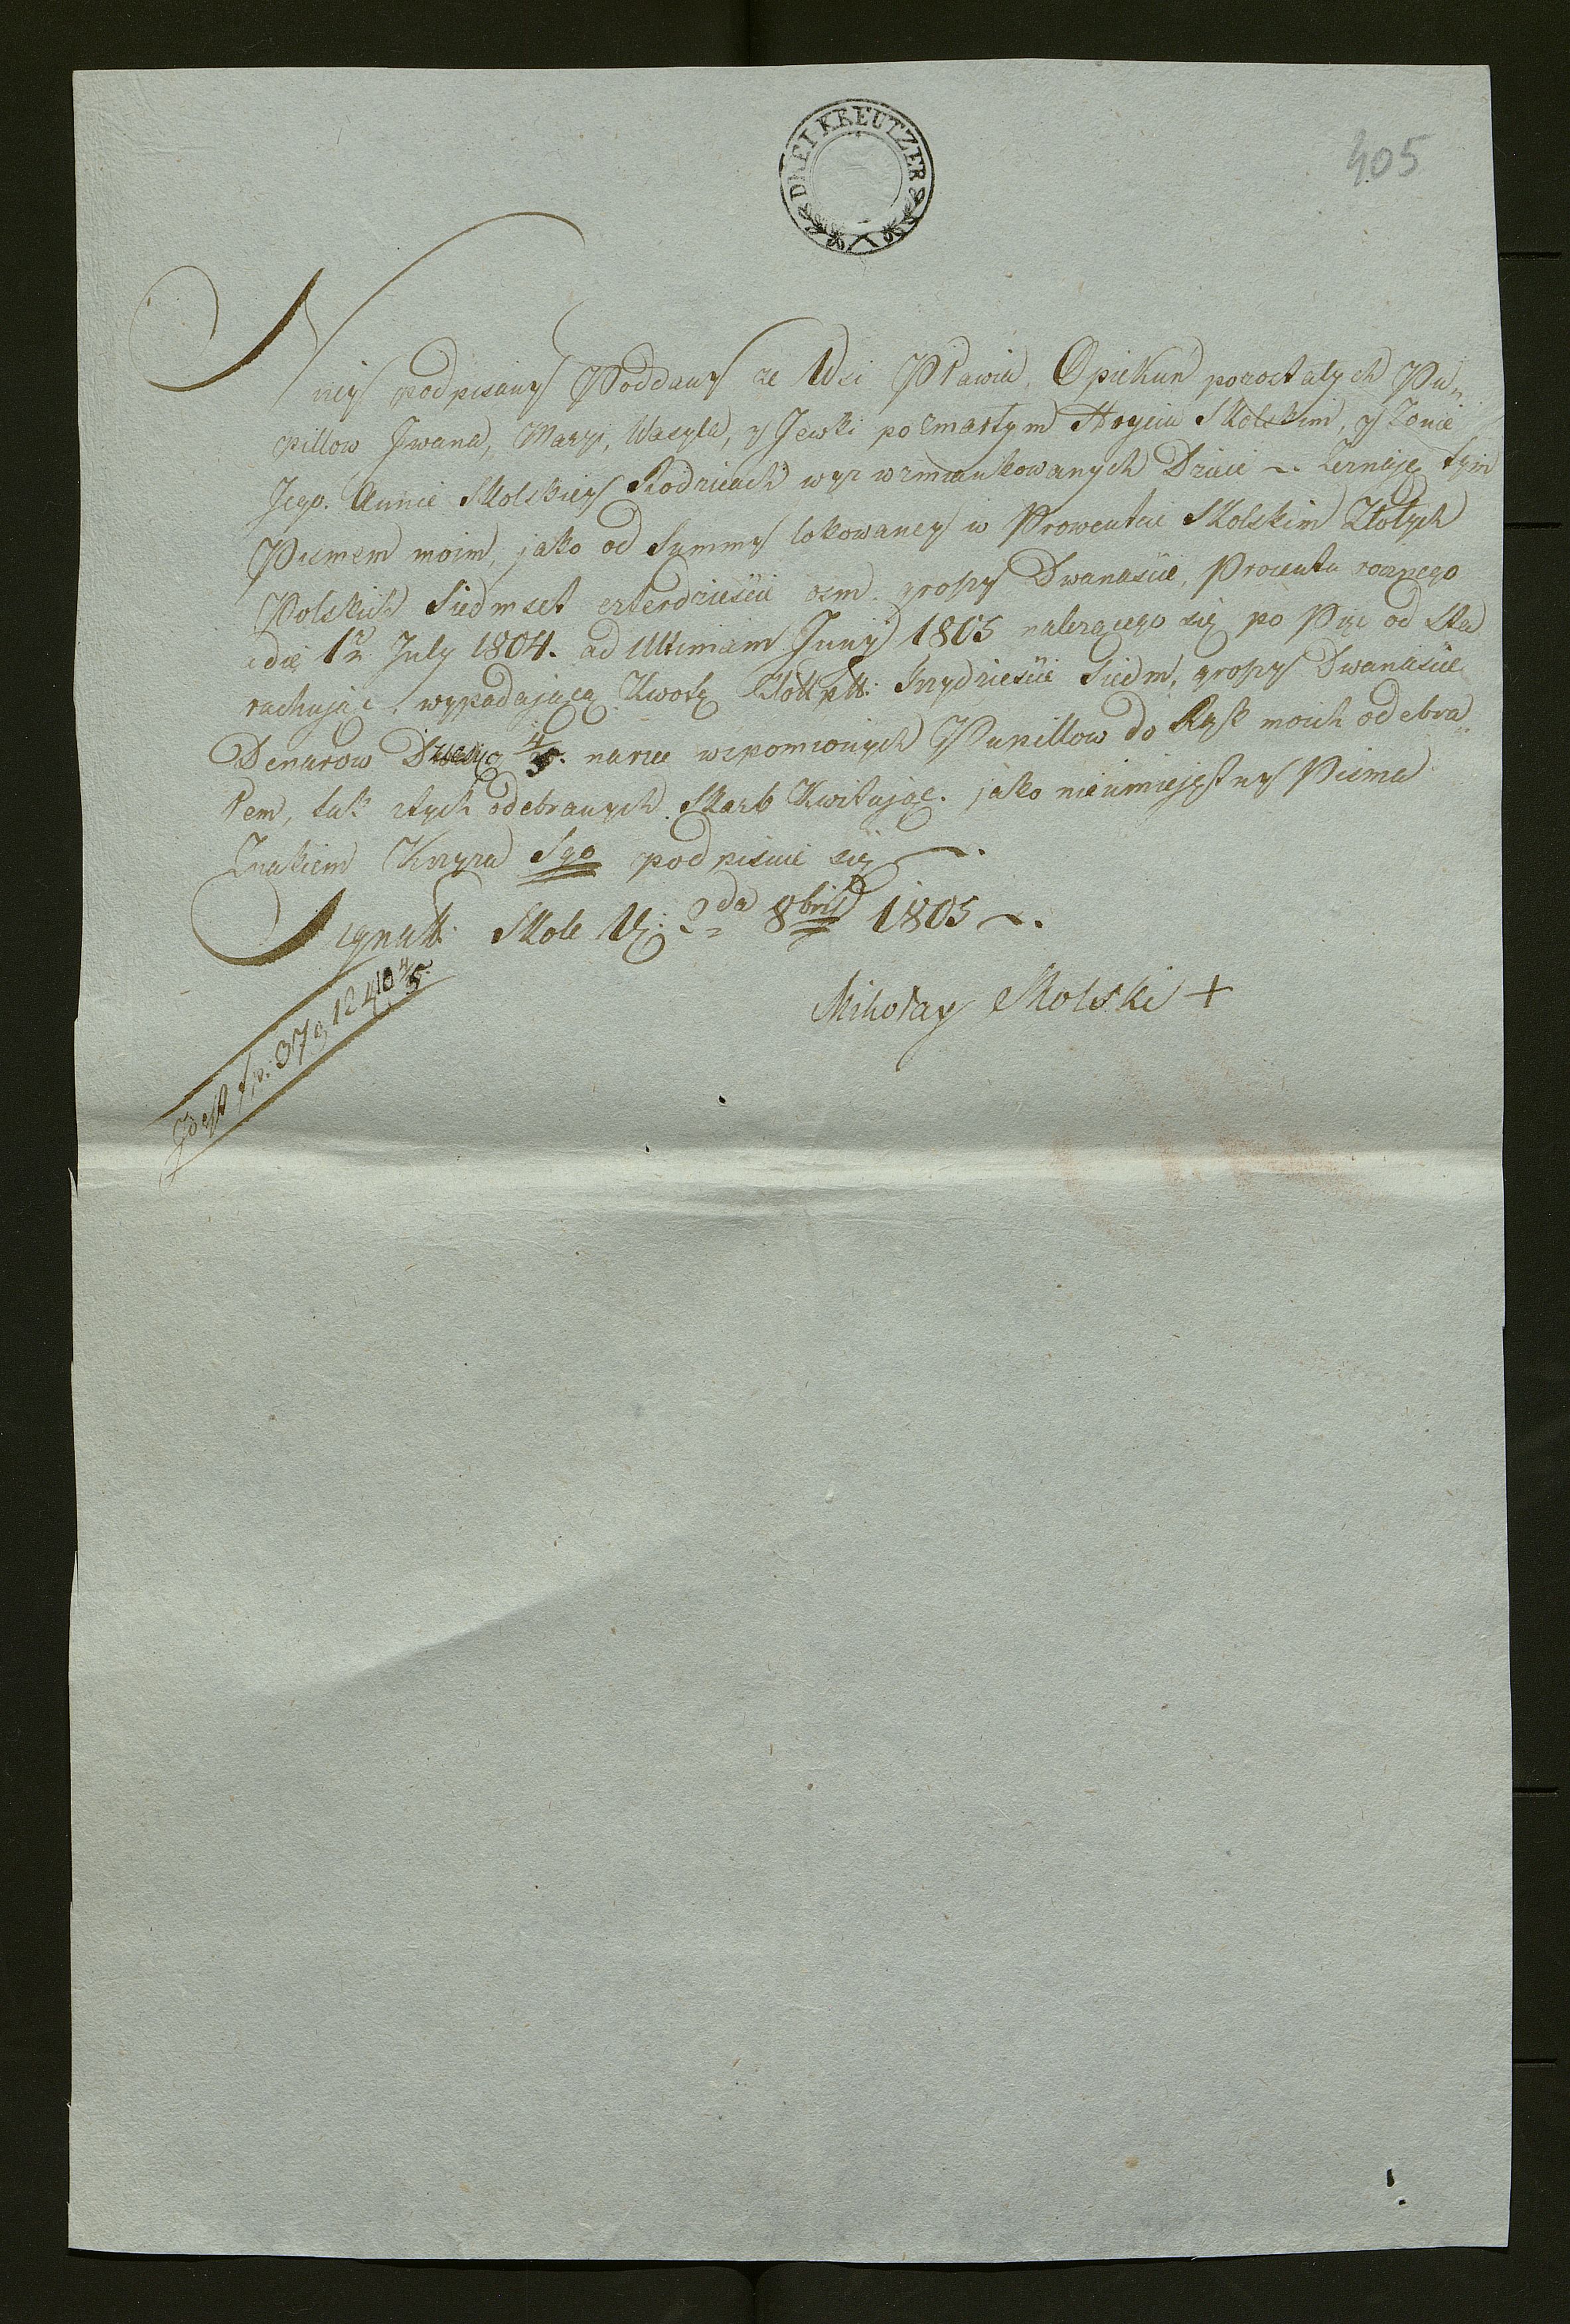 DREI KREUTZER
405
Niey podpisany Poddany ze Wsi Pławia, Opiekun pozostałych Pu„
pillow Jwana, Maryi, Wasyla, y Jewki po zmarłym Hryciu Skolskim, y Zonie
Jego. Annie Skolskiey Rodzicach wyz wzmiankowanych Dzieci ~. Zeznaję tym
Pismem moim, jako od Summy lokowaney w Prowentcie Skolskim Złotych
Polskich Siedmset czterdzieście osm groszy Dwanaście, Procentu rocznego
a die 1ma July 1804. ad Ultimam Juny 1805 należącego się po Pięć od Sta
rachując, wypadającą Kwotę Złott pll: Trzydzieście Siedm, groszy Dwanaście
Denarow 4/5. na rzec wspomionych Pupillow do Rąk moich odebra„
łem, tak z tych odebranych Skarb Kwitując. jako nieumiejętny Pisma
Znakiem Krzyza Sgo podpisuie się ~.
Signatt. Skole D: 2da 8bris 1805 ~.
Mikołay Skolski +
Jdest fp: 37 g 12 4/5.